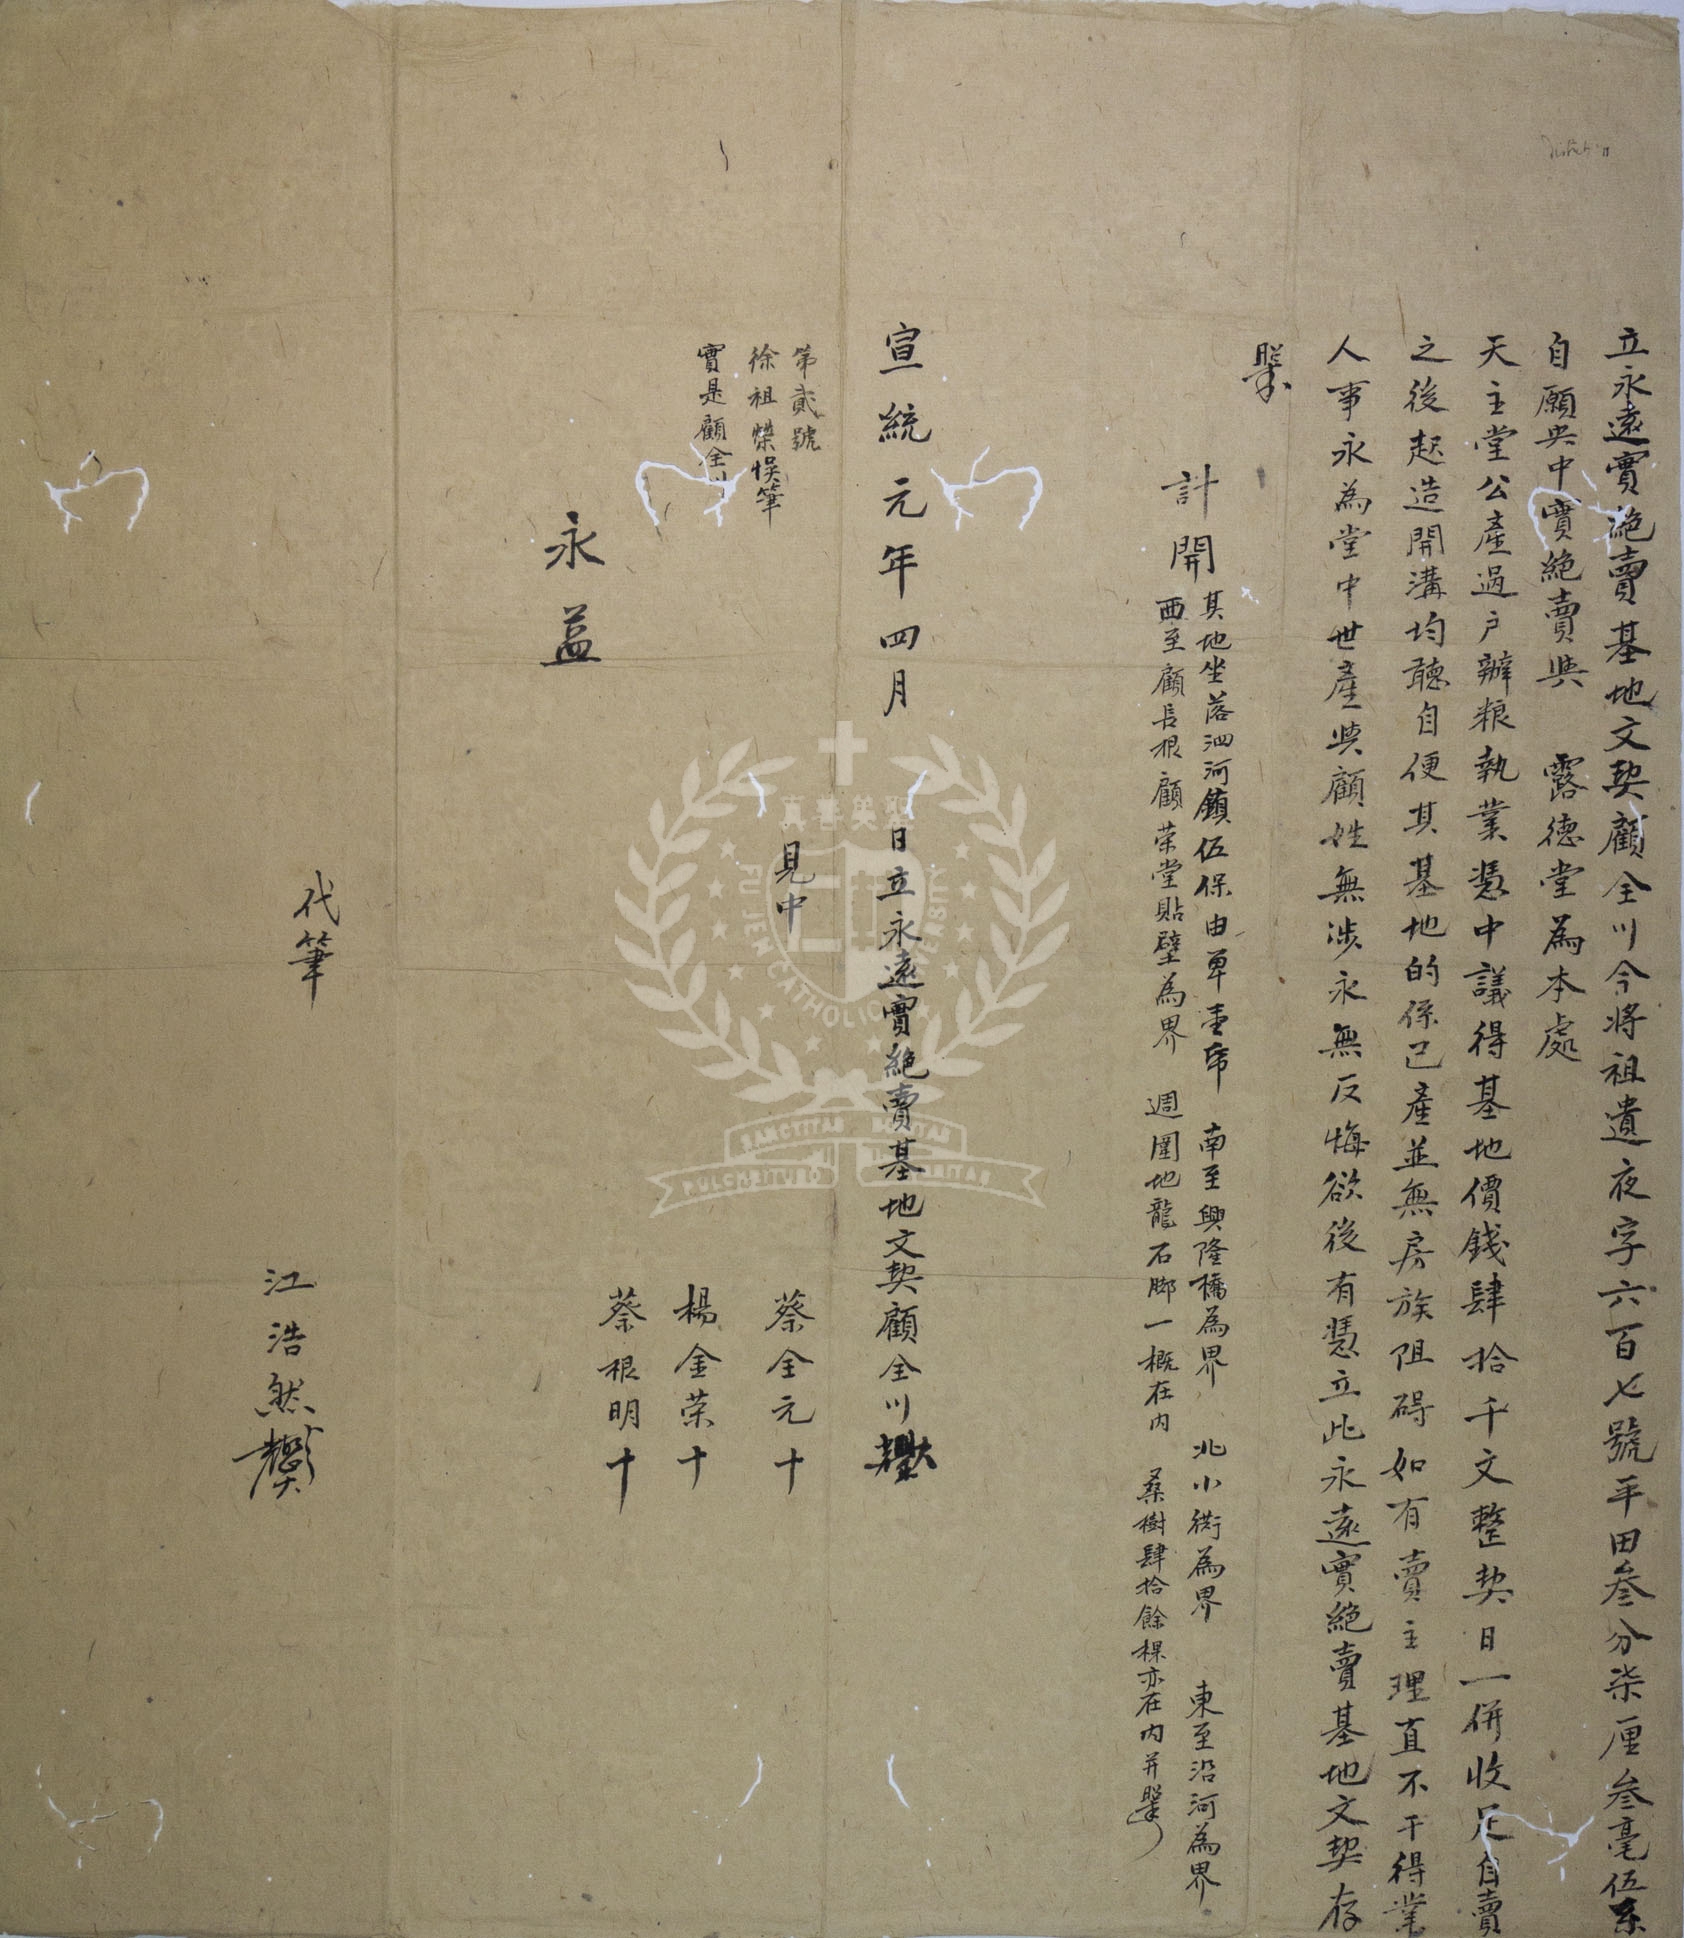 立永遠實絶賣基地文契顧全川今將祖遺夜字六百七號平田叁分柒厘叁毫伍系
自願央中實絶賣與 露德堂為本處
天主堂公產過户辦粮執業憑中議得基地價錢肆拾千文整契日一併收足自賣
之後起造開溝均聽自便其基地的係己產並無房族阻碍如有賣主理直不干得業
人事永為堂中世產與顧姓無涉永無反悔欲後有憑立此永遠實絶賣基地文契存
計開
其地坐落泗河鎮伍保由單壹帋 南至興隆橋為界 北小衖為界 東至沿河為界
西至顧長根顧荣堂貼壁為界 週圍地龍石腳一概在内 桑樹肆拾餘棵亦在内并
宣統元年四月 日立永遠實絶賣基地文契顧全川
第貳號
徐祖榮悞筆
實是顧全川
見中 蔡全元十
楊金荣十
蔡根明十
永益
代筆 江浩然
聖英善真
FU JEN CATHOLIC UNIVERSITY
SANCTITAS BONITAS
PULCHRITUDO VERITAS